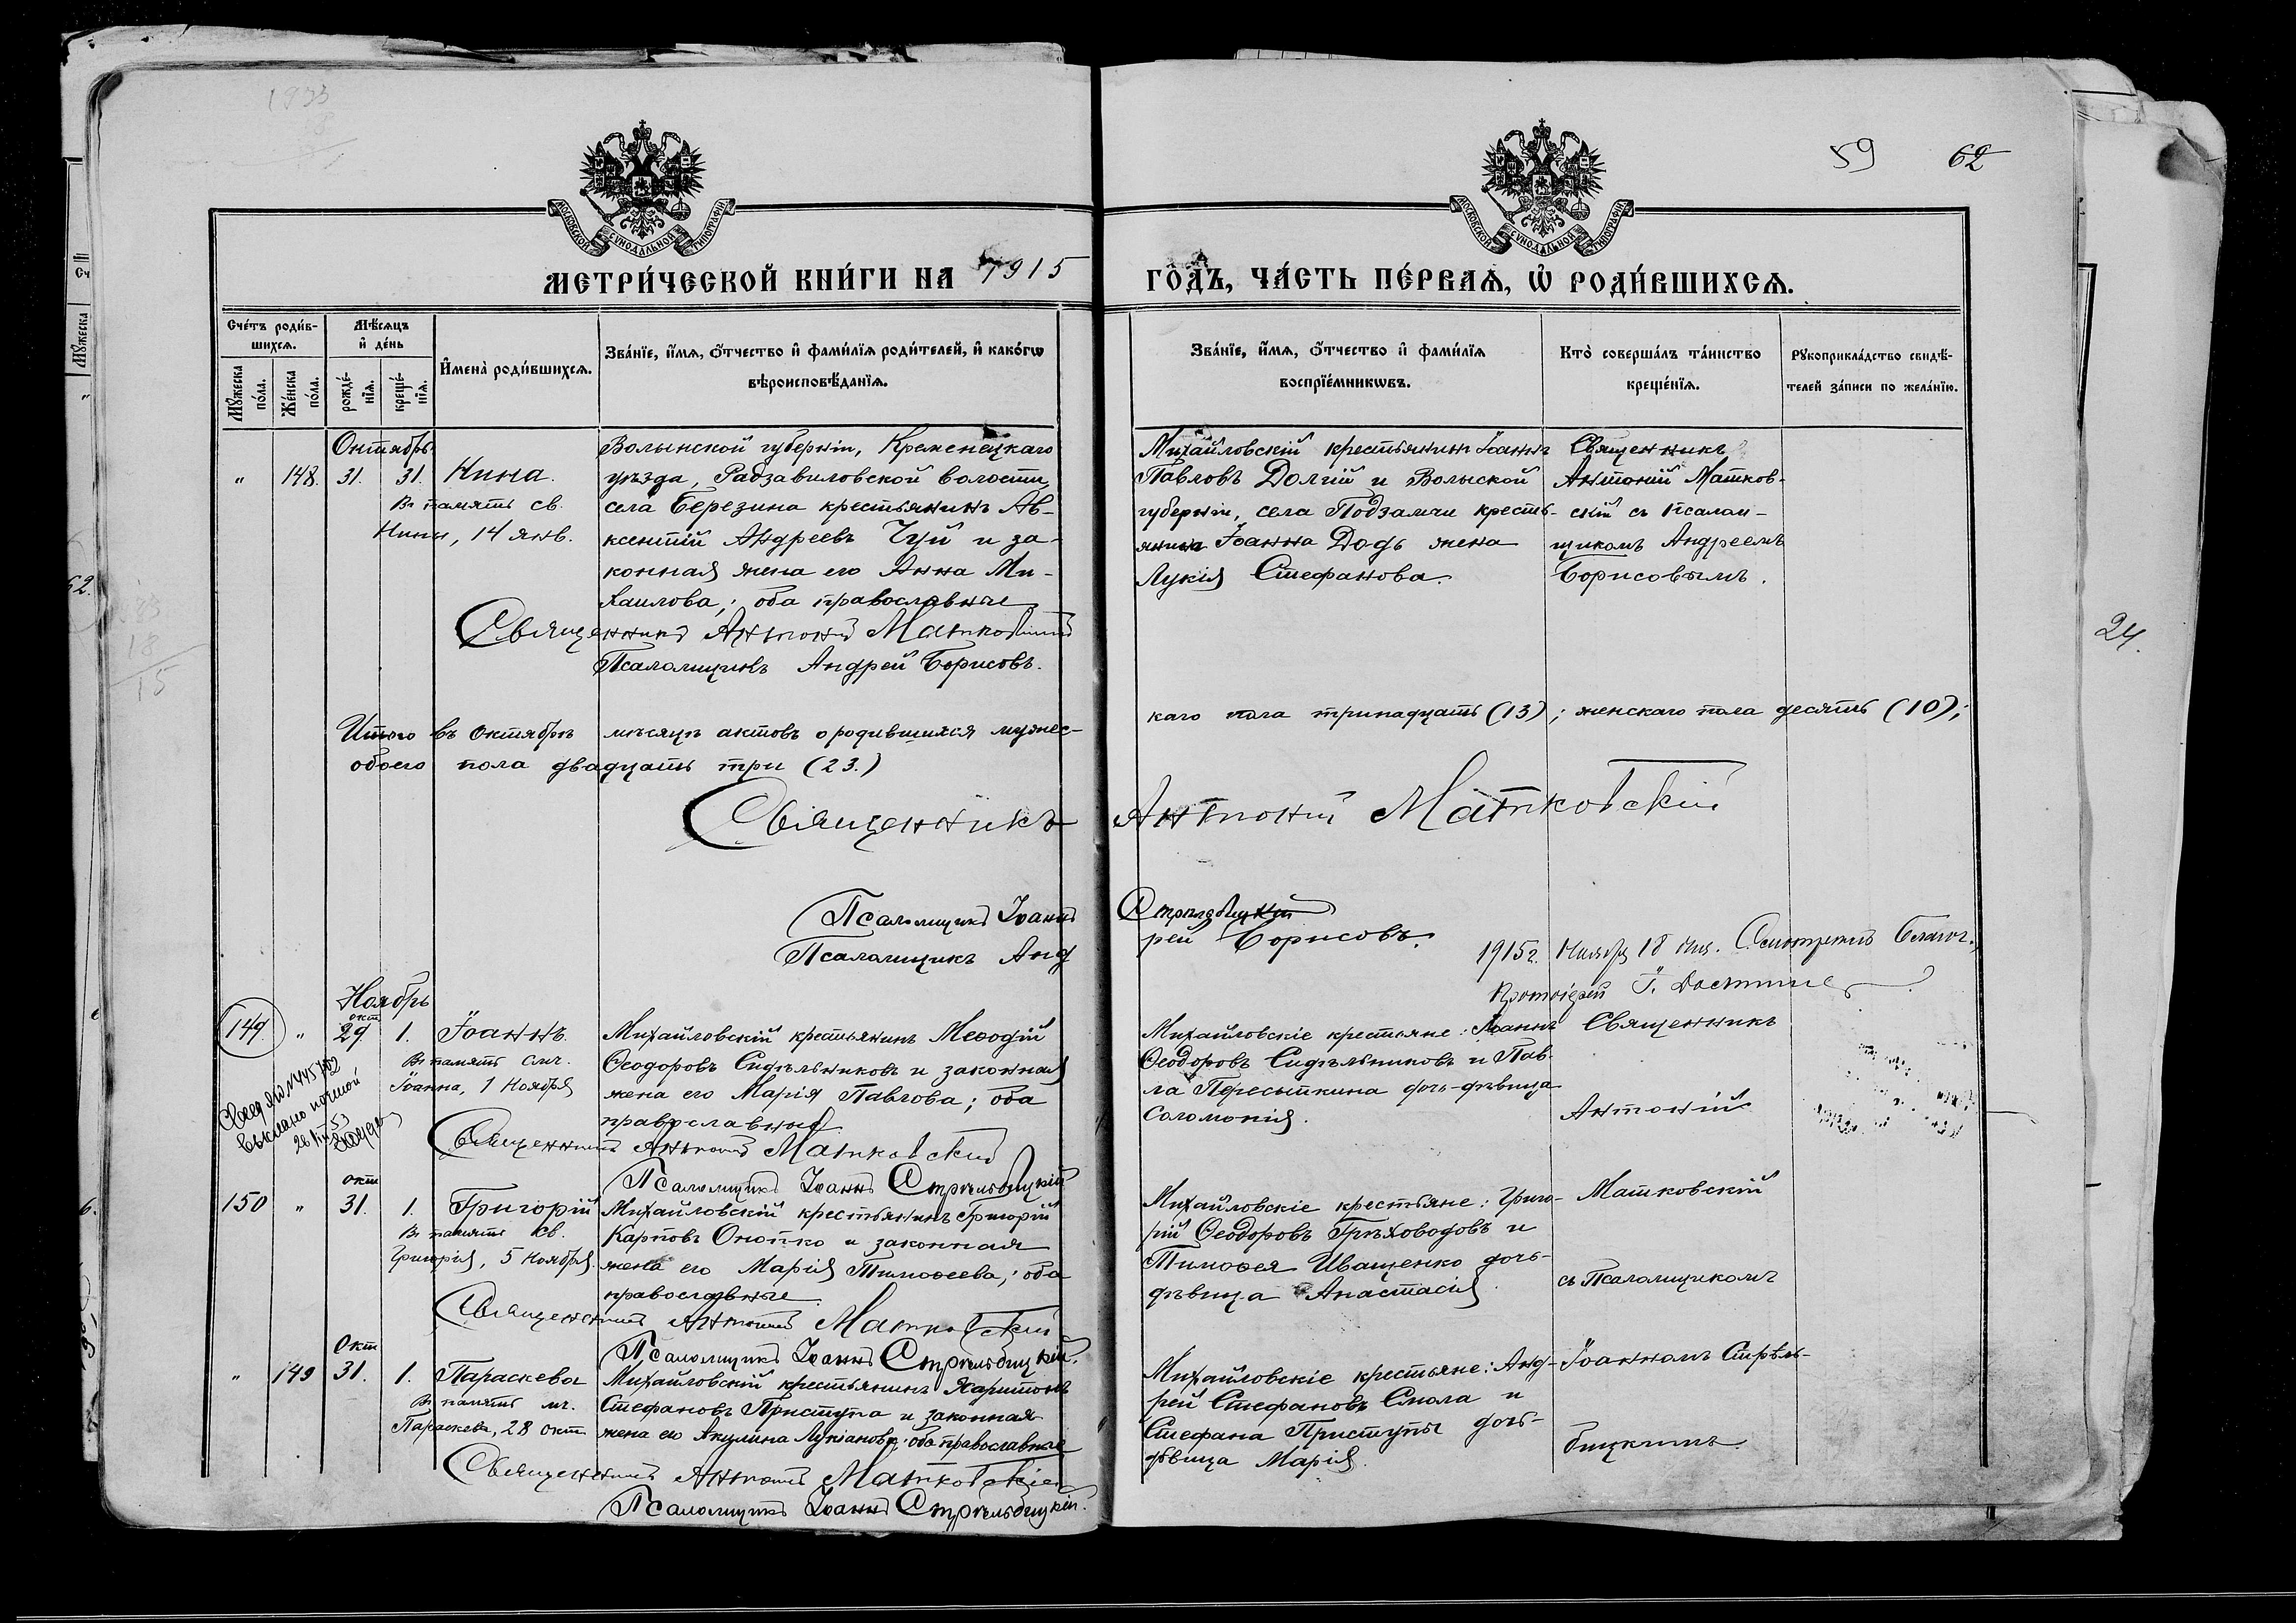 59 62
МОСКОВСКОЙ СУНОДАЛЬНОЙ ТИПОГРАФІИ
МОСКОВСКОЙ СУНОДАЛЬНОЙ ТИПОГРАФІИ
МЕТРИ́ЧЕСКОЙ КНИ́ГИ НА 1915
ГО́ДЪ, ЧА́СТЬ ПЕ́РВАѦ, Ѡ РОДИ́ВШИХСѦ.
Сче́тъ роди́в-
шихсѧ.
Мѣ́сѧцъ
и҆ де́нь
Мꙋ́жеска
по́ла.
Же́нска
по́ла.
рожде́-
нїѧ.
креще́-
нїѧ.
И҆мена̀ роди́вшихсѧ.
Зва́нїе, и҆́мѧ, ѻ҆́тчество и҆ фами́лїѧ роди́телей, и҆ како́гѡ
вѣроисповѣ́данїѧ.
Зва́нїе, и҆́мѧ, ѻ҆́тчество и҆ фами́лїѧ
воспрїе́мникѡвъ.
Кто̀ соверша́лъ та́инство
креще́нїѧ.
Рꙋкоприкла́дство свидѣ́-
телей за́писи по жела́нїю.
Октябрь
" 148. 31. 31. Нина.
В память св.
Нины, 14 янв.
Волынской губерніи, Кременецкаго
уѣзда, Радзавиловской волости
села Березина крестьянинъ Ав-
ксентій Андреевъ Чуй и за-
конная жена его Анна Ми-
хаилова; оба православные
Священникъ Антоній Матковскій
Псаломщикъ Андрей Борисовъ.
Михайловскій крестьянин Іоаннъ
Павловъ Долгій и Волыской
губерніи, села Подзамчи кресть-
янина Іоанна Додь жена
Лукія Стефанова.
Священникъ
Антоній Матков-
скій съ псалом-
щикомъ Андреемъ
Борисовымъ.
Итого въ октябрѣ мѣсяцѣ актовъ о родившихся мужес-
каго пола тринадцать (13); женскаго пола десять (10);
обоего пола двадцать три (23.)
Священникъ Антоній Матковскій
Псаломщикъ Іоаннъ Стрѣлбицкій
Псаломщикъ Анд
рей Борисовъ.
1915г. Ноября 18 дня. Благоч.
Протоіерей І.
Ноябрь
окт
149. " 29. 1. Іоаннъ.
Въ память смч.
Іоанна, 1 Ноября
выслано почтой
Михайловскій крестьянинъ Меѳодій
Ѳеодоровъ Сидѣльниковъ и законная
жена его Марія Павлова; оба
православные
Священникъ Антоній Матковскій
Псаломщикъ Іоаннъ Стрѣльбицкій
Михайловскіе крестьяне: Іоаннъ
Ѳеодоровъ Сидѣльниковъ и Пав-
ла Пересыпкина дочь-дѣвица
Соломонія.
Священникъ
Антоній
окт
150 " 31. 1. Григорій
В память св.
Григорія, 5 ноября.
Михайловскій крестьянинъ Григорій
Карповъ Онопко и законная
жена его Марія Тимоѳеева; оба
православные
Священникъ Антоній Матковскій
Псаломщикъ Іоаннъ Стрѣльбицкій.
Михайловскіе крестьяне: Григо-
рій Ѳеодоровъ Грѣховодовъ и
Тимоѳея Иващенко дочь-
дѣвица Анастасія.
Матковскій
съ Псаломщикомъ
Окт
" 149 31. 1. Параскева
Въ память мч.
Параскевы, 28 окт
Михайловскій крестьянинъ Харитонъ
Стефановъ Приступа и законная
жена его Акулина Лукіанова; оба православные
Священникъ Антоній Матковскій
Псаломщикъ Іоаннъ Стрѣльбицкій.
Михайловскіе крестьяне: Анд-
рей Стефановъ Смола и
Стефана Приступы дочь-
дѣвица Марія.
Іоанномъ Стрѣль-
бицкимъ.
24.